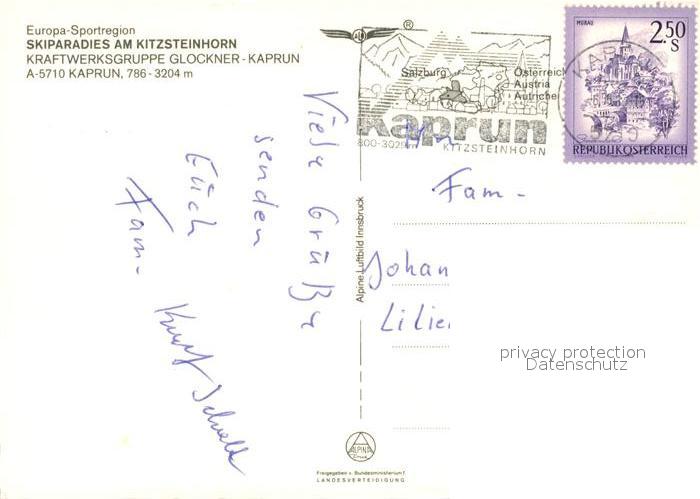 Europa-Sportregion
SKIPARADIES AM KITZSTEINHORN
KRAFTWERKSGRUPPE GLOCKNER-KAPRUN
A-5710 KAPRUN, 786-3204 m
Viele Grüße
senden
Euch
Fam. Kurt
Alpine Luftbild Innsbruck
ALPINE
Freigegeben v. Bundesministerium f.
LANDESVERTEIDIGUNG
®
Salzburg
Österreich
Austria
Autriche
Kaprun
800-3029m KITZSTEINHORN
MURAU
2.50
S
REPUBLIK ÖSTERREICH
Fam.
Johan
Lilie
privacy protection
Datenschutz